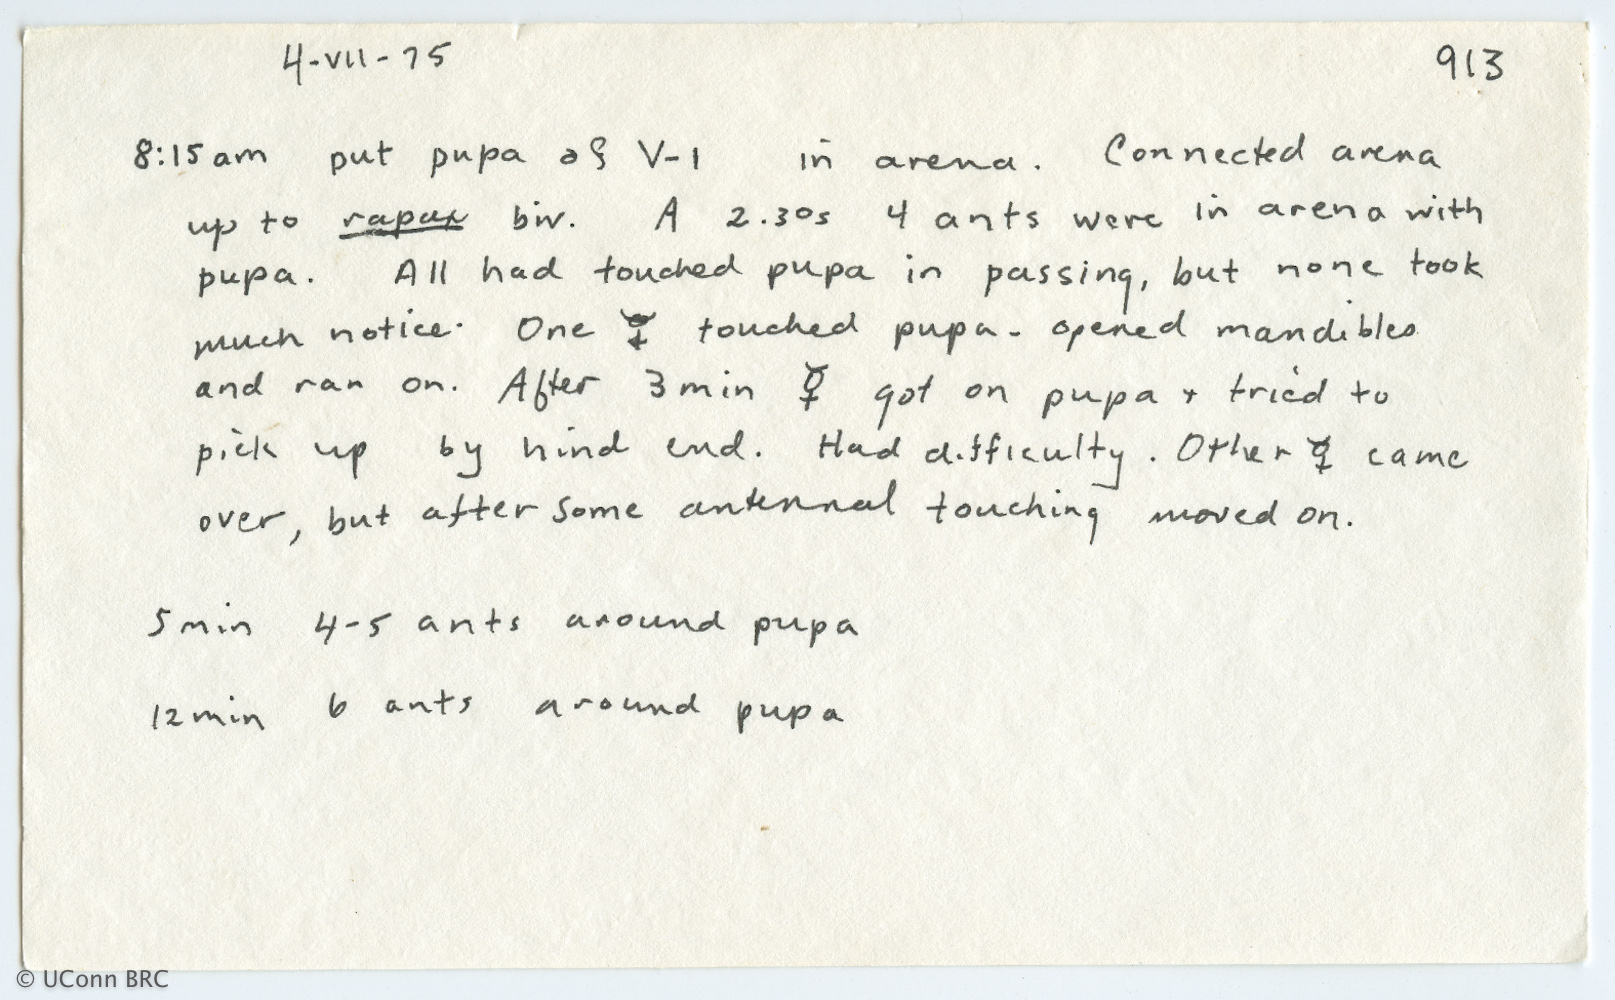 4-VII-75 913
8:15am put pupa of V-1 in arena. Connected arena
up to rapax biv. A 2.30s 4 ants were in arena with
pupa. All had touched pupa in passing, but none took
much notice. One ☿ touched pupa - opened mandibles
and ran on. After 3min ☿ got on pupa + tried to
pick up by hind end. Had difficulty. Other ☿ came
over, but after some antennal touching moved on.
5min 4-5 ants around pupa
12min 6 ants around pupa
© UConn BRC